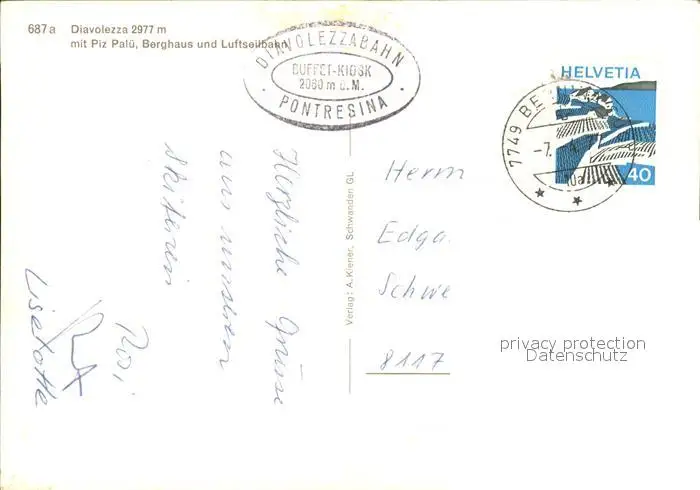 687a Diavolezza 2977 m
mit Piz Palü, Berghaus und Luftseilbahn
DIAVOLEZZABAHN
BUFFET-KIOSK
2080 m ü. M.
PONTRESINA
HELVETIA
40
7749 BE
-7.
Herzliche Grüsse
aus unseren
Skiferien
Rosi
Liselotte
Verlag: A. Kiener, Schwanden GL
Herrn
Edga
Schwe
8117
privacy protection
Datenschutz